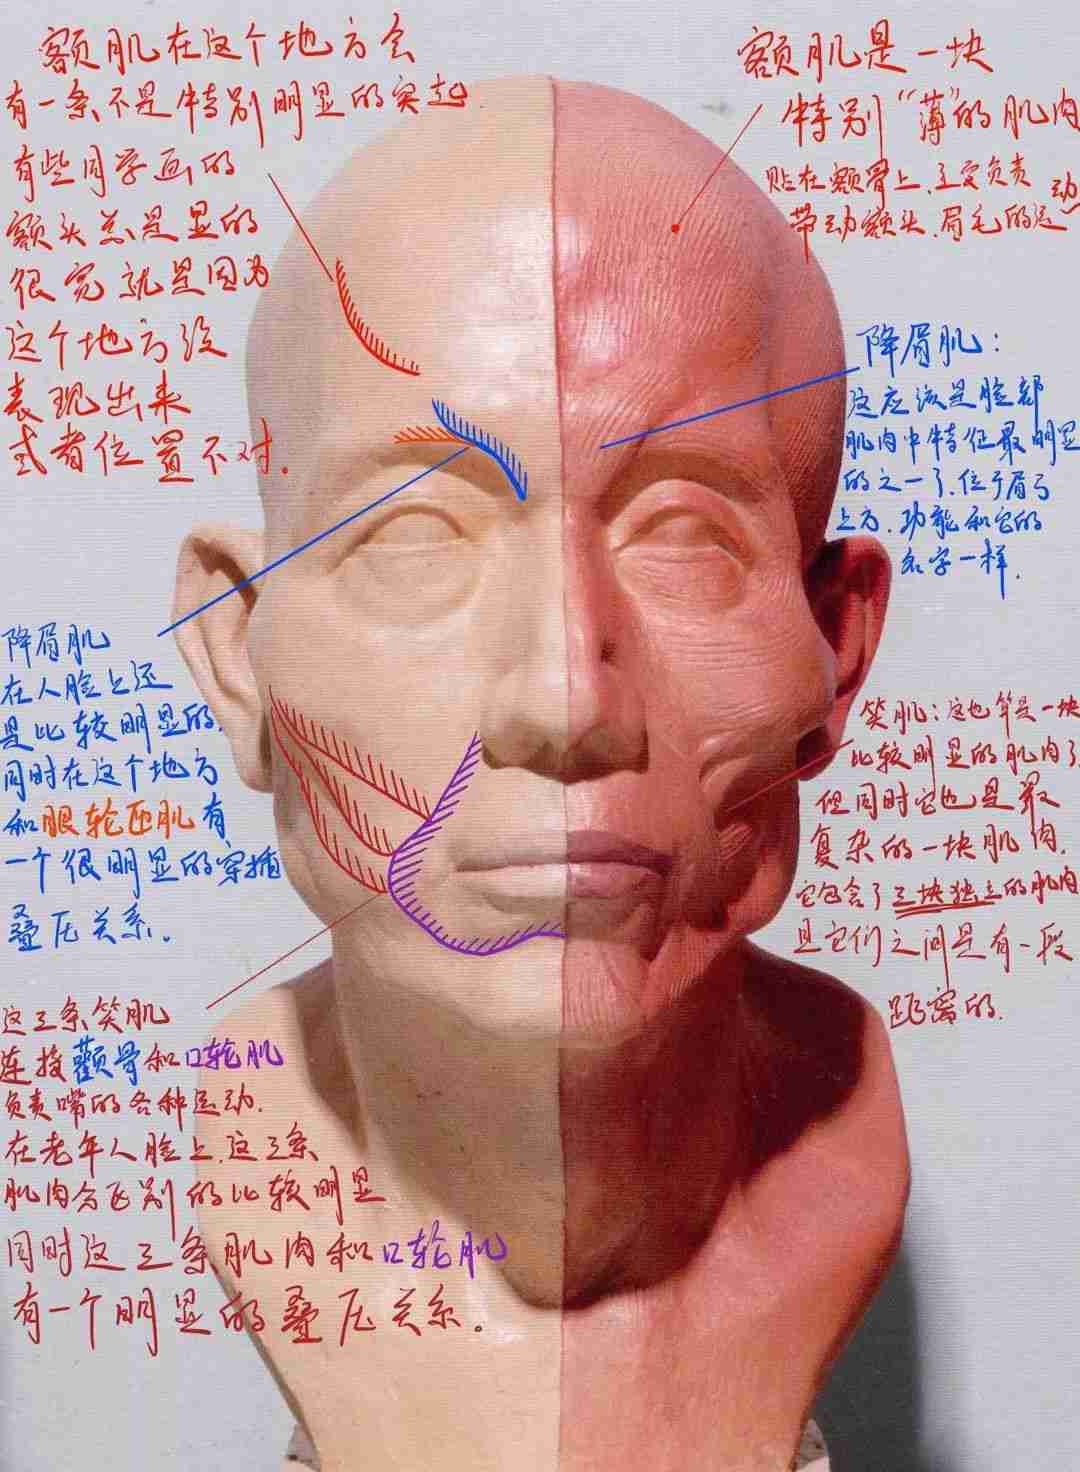 额肌在这个地方会
有一条不是特别明显的突起
有些同学画的
额头总是显的
很宽就是因为
这个地方没
表现出来
或者位置不对.
额肌是一块
特别“薄”的肌肉
贴在额骨上.主要负责
带动额头.眉毛的运动
降眉肌:
这应该是脸部
肌肉中特征最明显
的之一了.位于眉弓
上方.功能和它的
名字一样.
降眉肌
在人脸上还
是比较明显的.
同时在这个地方
和眼轮匝肌有
一个很明显的穿插
叠压关系.
笑肌:这也算是一块
比较明显的肌肉了.
但同时它也是最
复杂的一块肌肉.
它包含了三块独立的肌肉
且它们之间是有一段
距离的.
这三条笑肌
连接颧骨和口轮肌
负责嘴的各种运动.
在老年人脸上.这三条
肌肉会区别的比较明显
同时这三条肌肉和口轮肌
有一个明显的叠压关系.